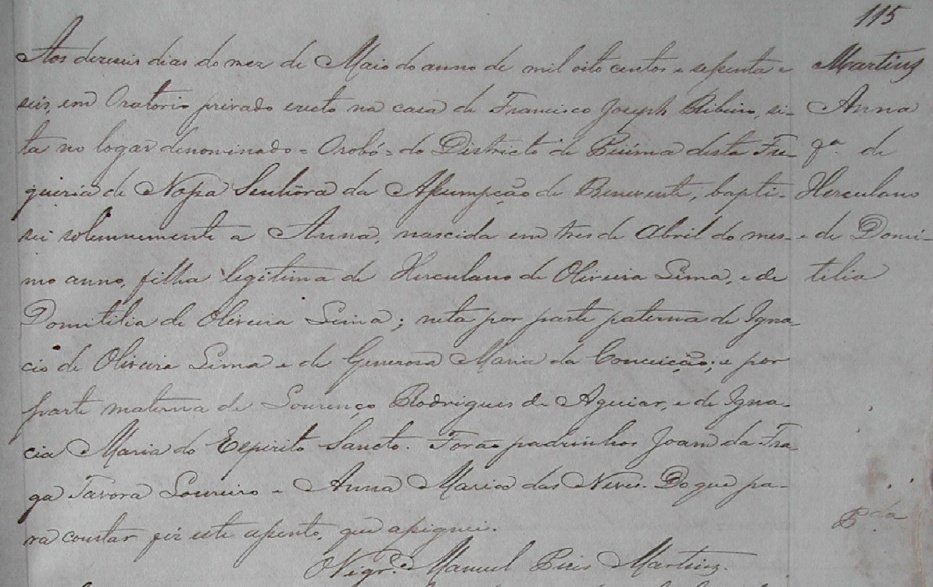 115
Aos dezeseis dias do mez de Maio do anno de mil oito centos e septenta e
seis, em Oratorio privado erecto na casa de Francisco Joseph Ribeiro, si-
ta no logar denominado = Orobó = do Districto de Piúma desta Fre-
guezia de Nossa Senhora da Assumpção de Benevente, bapti-
sei solemnemente a Anna, nascida em tres de Abril do mes-
mo anno, filha legitima de Herculano de Oliveira Lima, e de
Domitilia de Oliveira Lima; neta por parte paterna de Igna-
cio de Oliveira Lima e de Generosa Maria da Conceição; e por
parte materna de Lourenço Rodrigues de Aguiar, e de Igna-
cia Maria do Espirito Sancto. Forão padrinhos Joam da Fra-
ga Tavora Loureiro e Anna Maria das Neves. Do que pa-
ra constar fiz este assento, que assignei.
Vigr.º Manuel Pires Martins.
Martins
Anna
fª. de
Herculano
e de Domi-
tilia